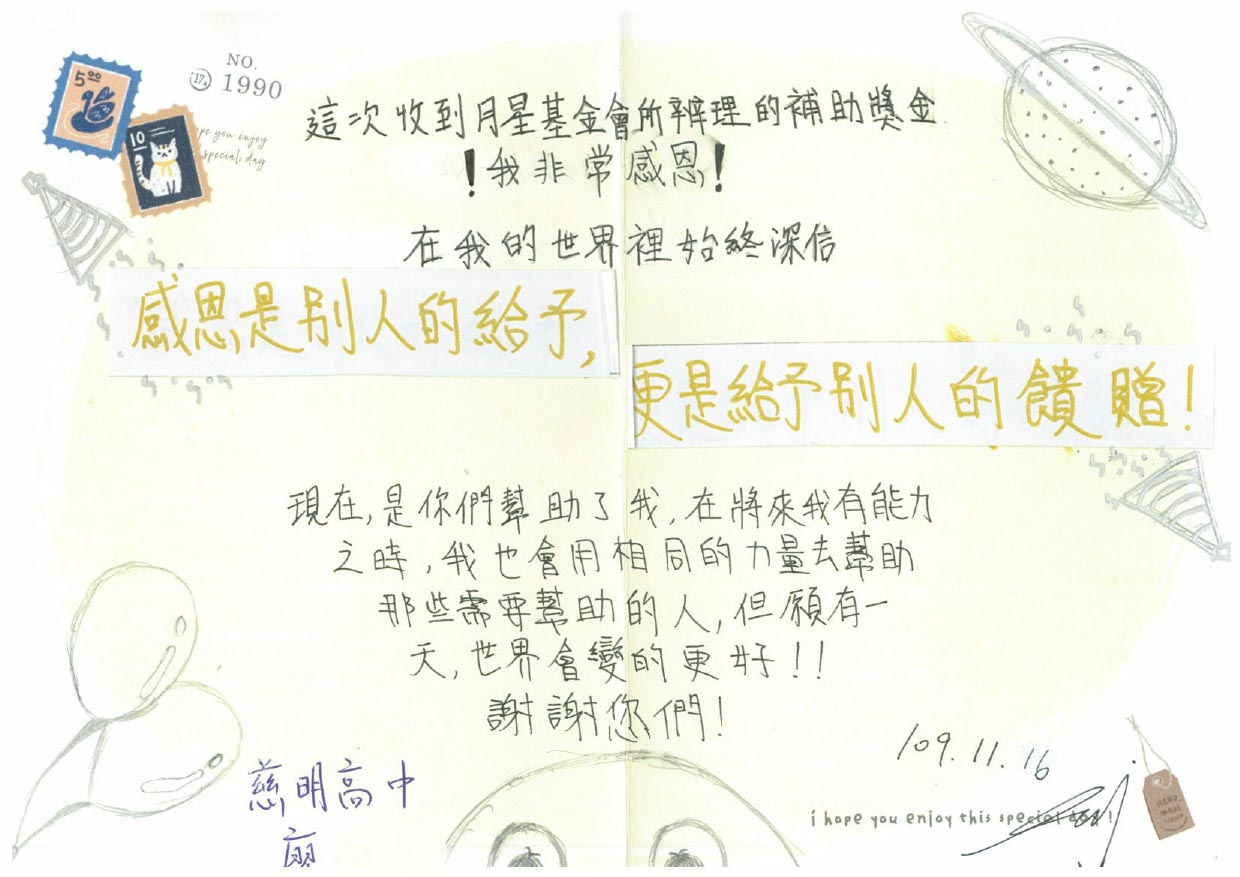 NO.
17
1990
5⁰⁰
10
pe you enjoy
special day
這次收到月星基金會所辦理的補助獎金
!我非常感恩!
在我的世界裡始終深信
感恩是別人的給予,
更是給予別人的饋贈!
現在,是你們幫助了我,在將來我有能力
之時,我也會用相同的力量去幫助
那些需要幫助的人,但願有一
天,世界會變的更好!!
謝謝您們!
109.11.16
慈明高中
廖
i hope you enjoy this special day!